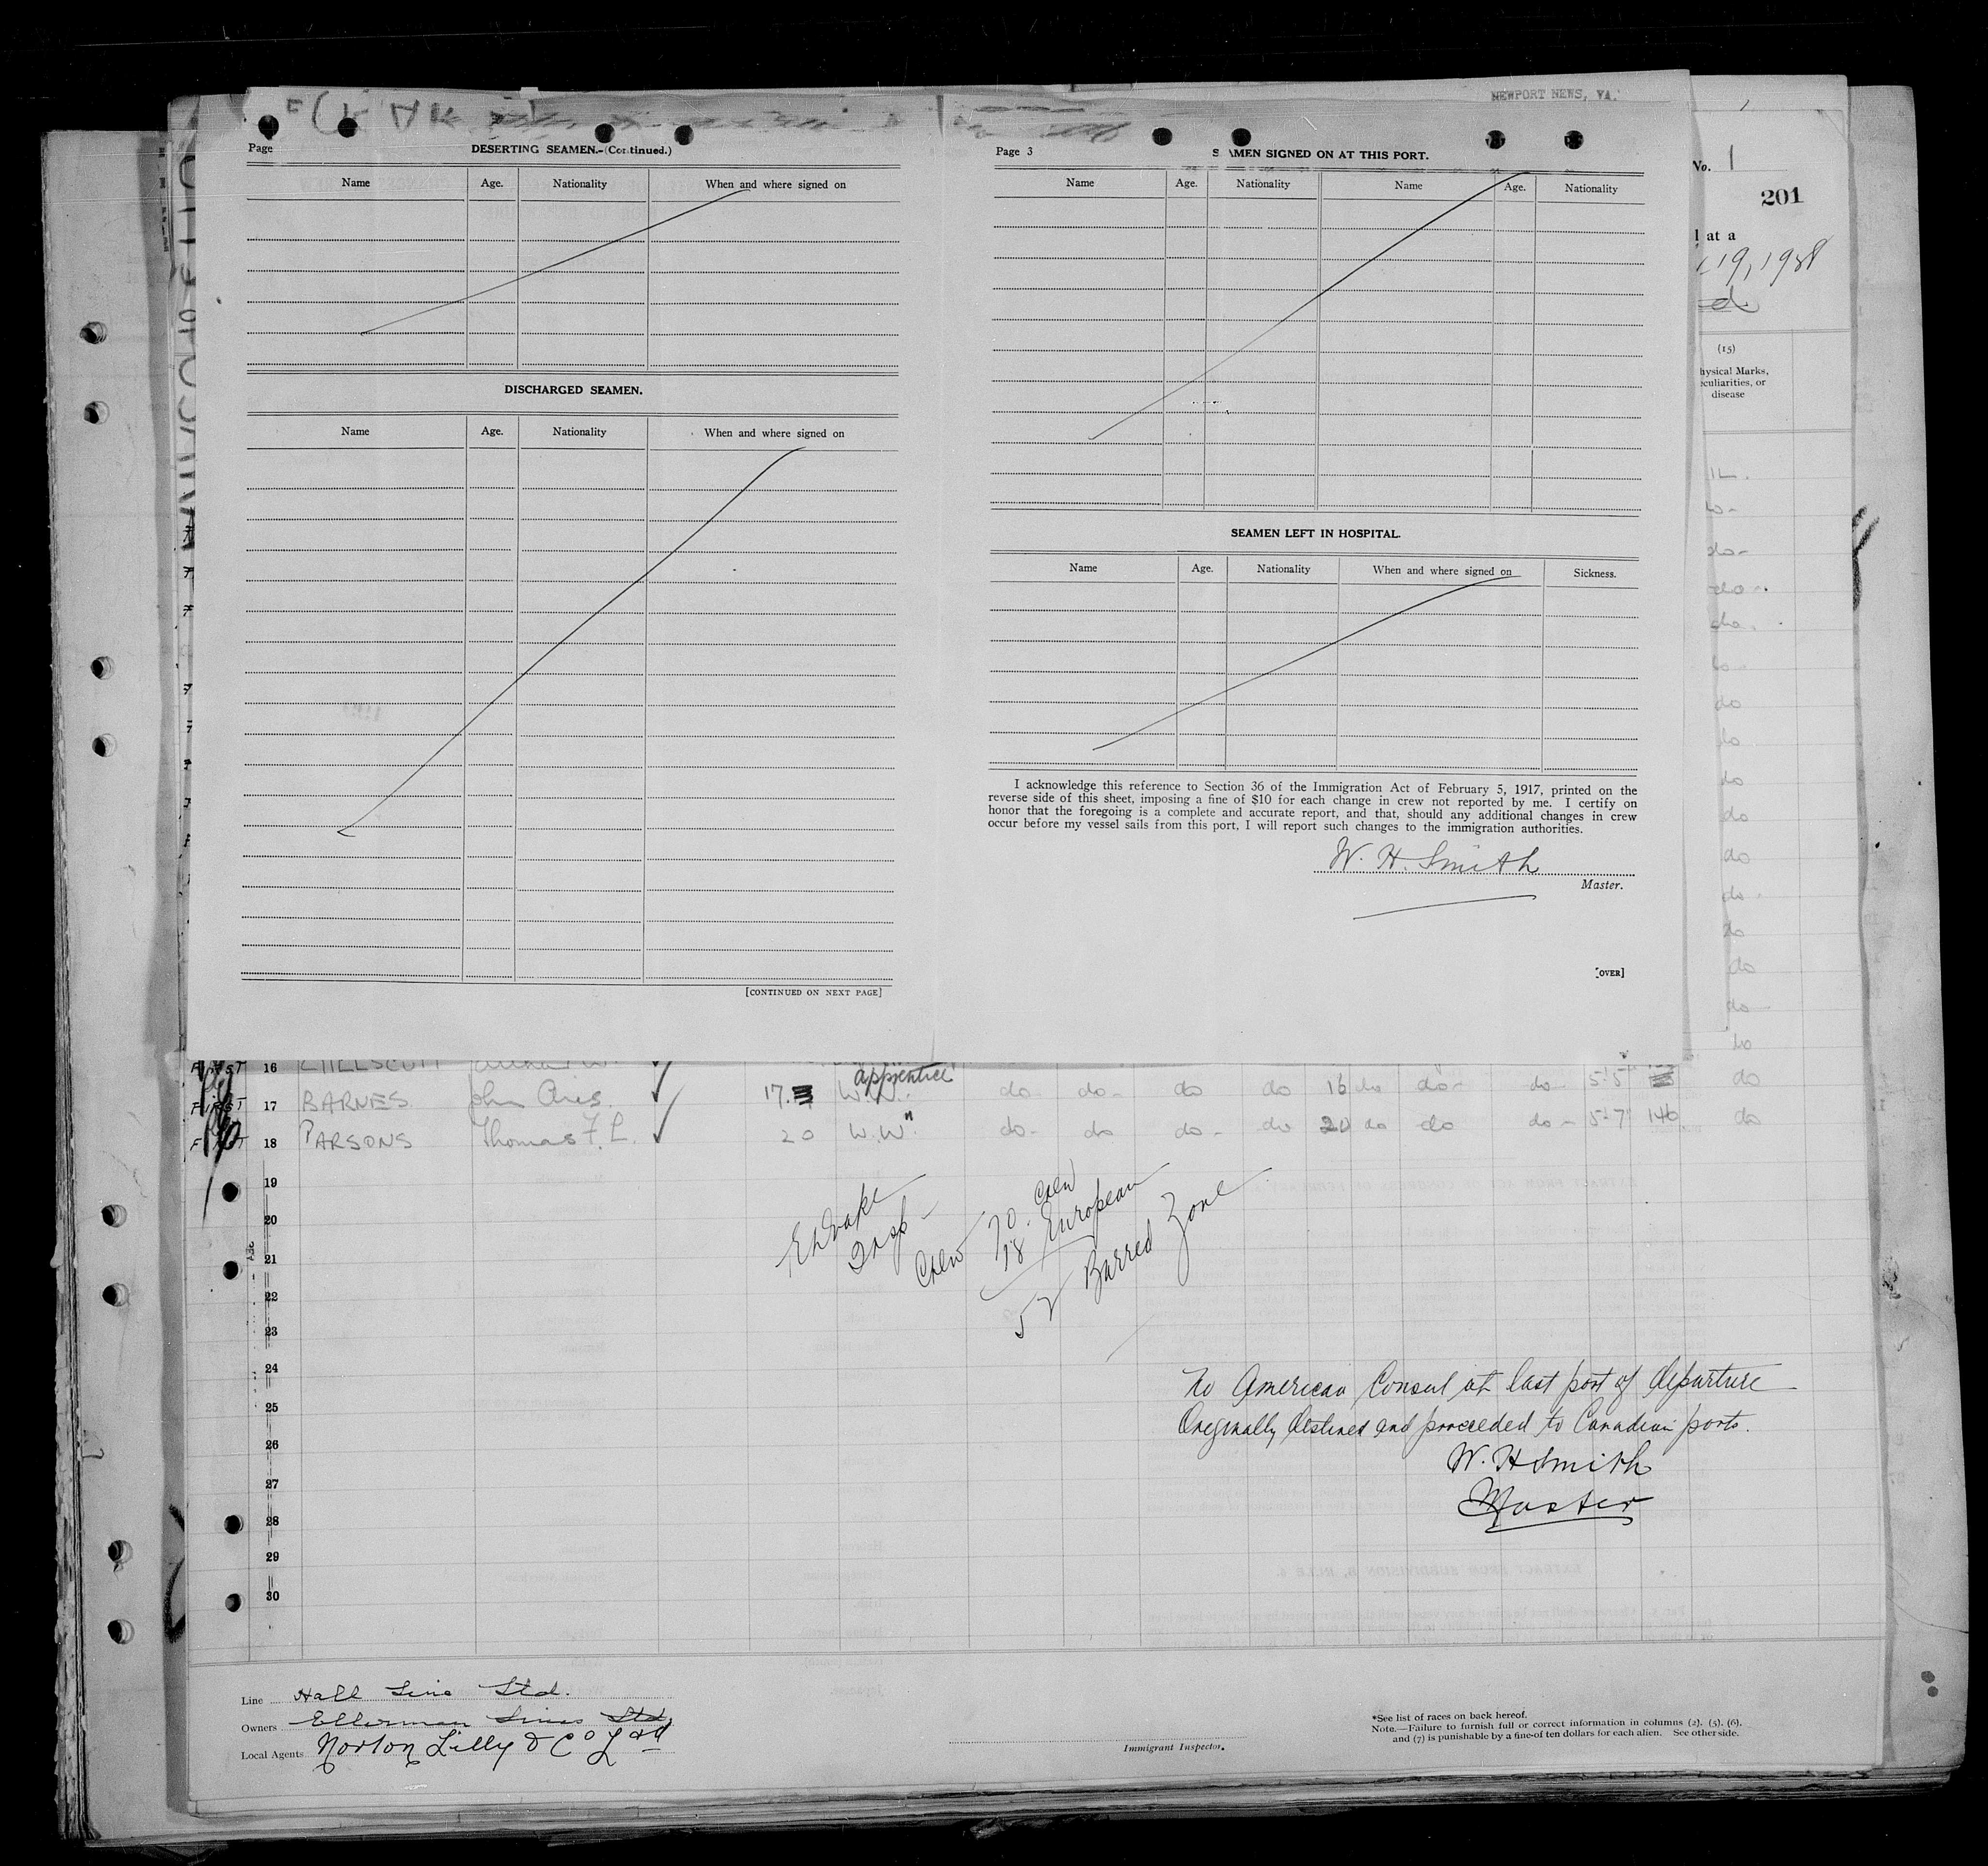 NEWPORT NEWS, VA.
Page
DESERTING SEAMEN.-(Continued.)
Name Age. Nationality When and where signed on
DISCHARGED SEAMEN.
Name Age. Nationality When and where signed on
[CONTINUED ON NEXT PAGE]
Page 3
SEAMEN SIGNED ON AT THIS PORT.
Name Age. Nationality Name Age. Nationality
SEAMEN LEFT IN HOSPITAL.
Name Age. Nationality When and where signed on Sickness.
I acknowledge this reference to Section 36 of the Immigration Act of February 5, 1917, printed on the
reverse side of this sheet, imposing a fine of $10 for each change in crew not reported by me. I certify on
honor that the foregoing is a complete and accurate report, and that, should any additional changes in crew
occur before my vessel sails from this port, I will report such changes to the immigration authorities.
W. H. Smith
Master.
[OVER]
No. 1
201
at a
19, 1938
(15)
hysical Marks,
eculiarities, or
disease
do
do
do
do
do
do
do
do
do
do
do
do
do
do
16
apprentice
FIRST 17 BARNES John 17 W.W. do do do do 16 do do do 5-5 do
FIRST 18 PARSONS Thomas F. L. 20 W.W. " do do do do 20 do do do 5-7 140 do
19
20
21
22
23
24
25
26
27
28
29
30
Insp
Crew 70 Crew
18 European
52 Barred Zone
No American Consul at last port of departure
Originally destined and proceeded to Canadian ports.
W. H Smith
Master
Line Hall Line Ltd.
Owners Ellerman Lines Ltd,
Local Agents Norton Lilly & Co Ltd
Immigrant Inspector.
*See list of races on back hereof.
Note.—Failure to furnish full or correct information in columns (2), (5), (6),
and (7) is punishable by a fine of ten dollars for each alien. See other side.